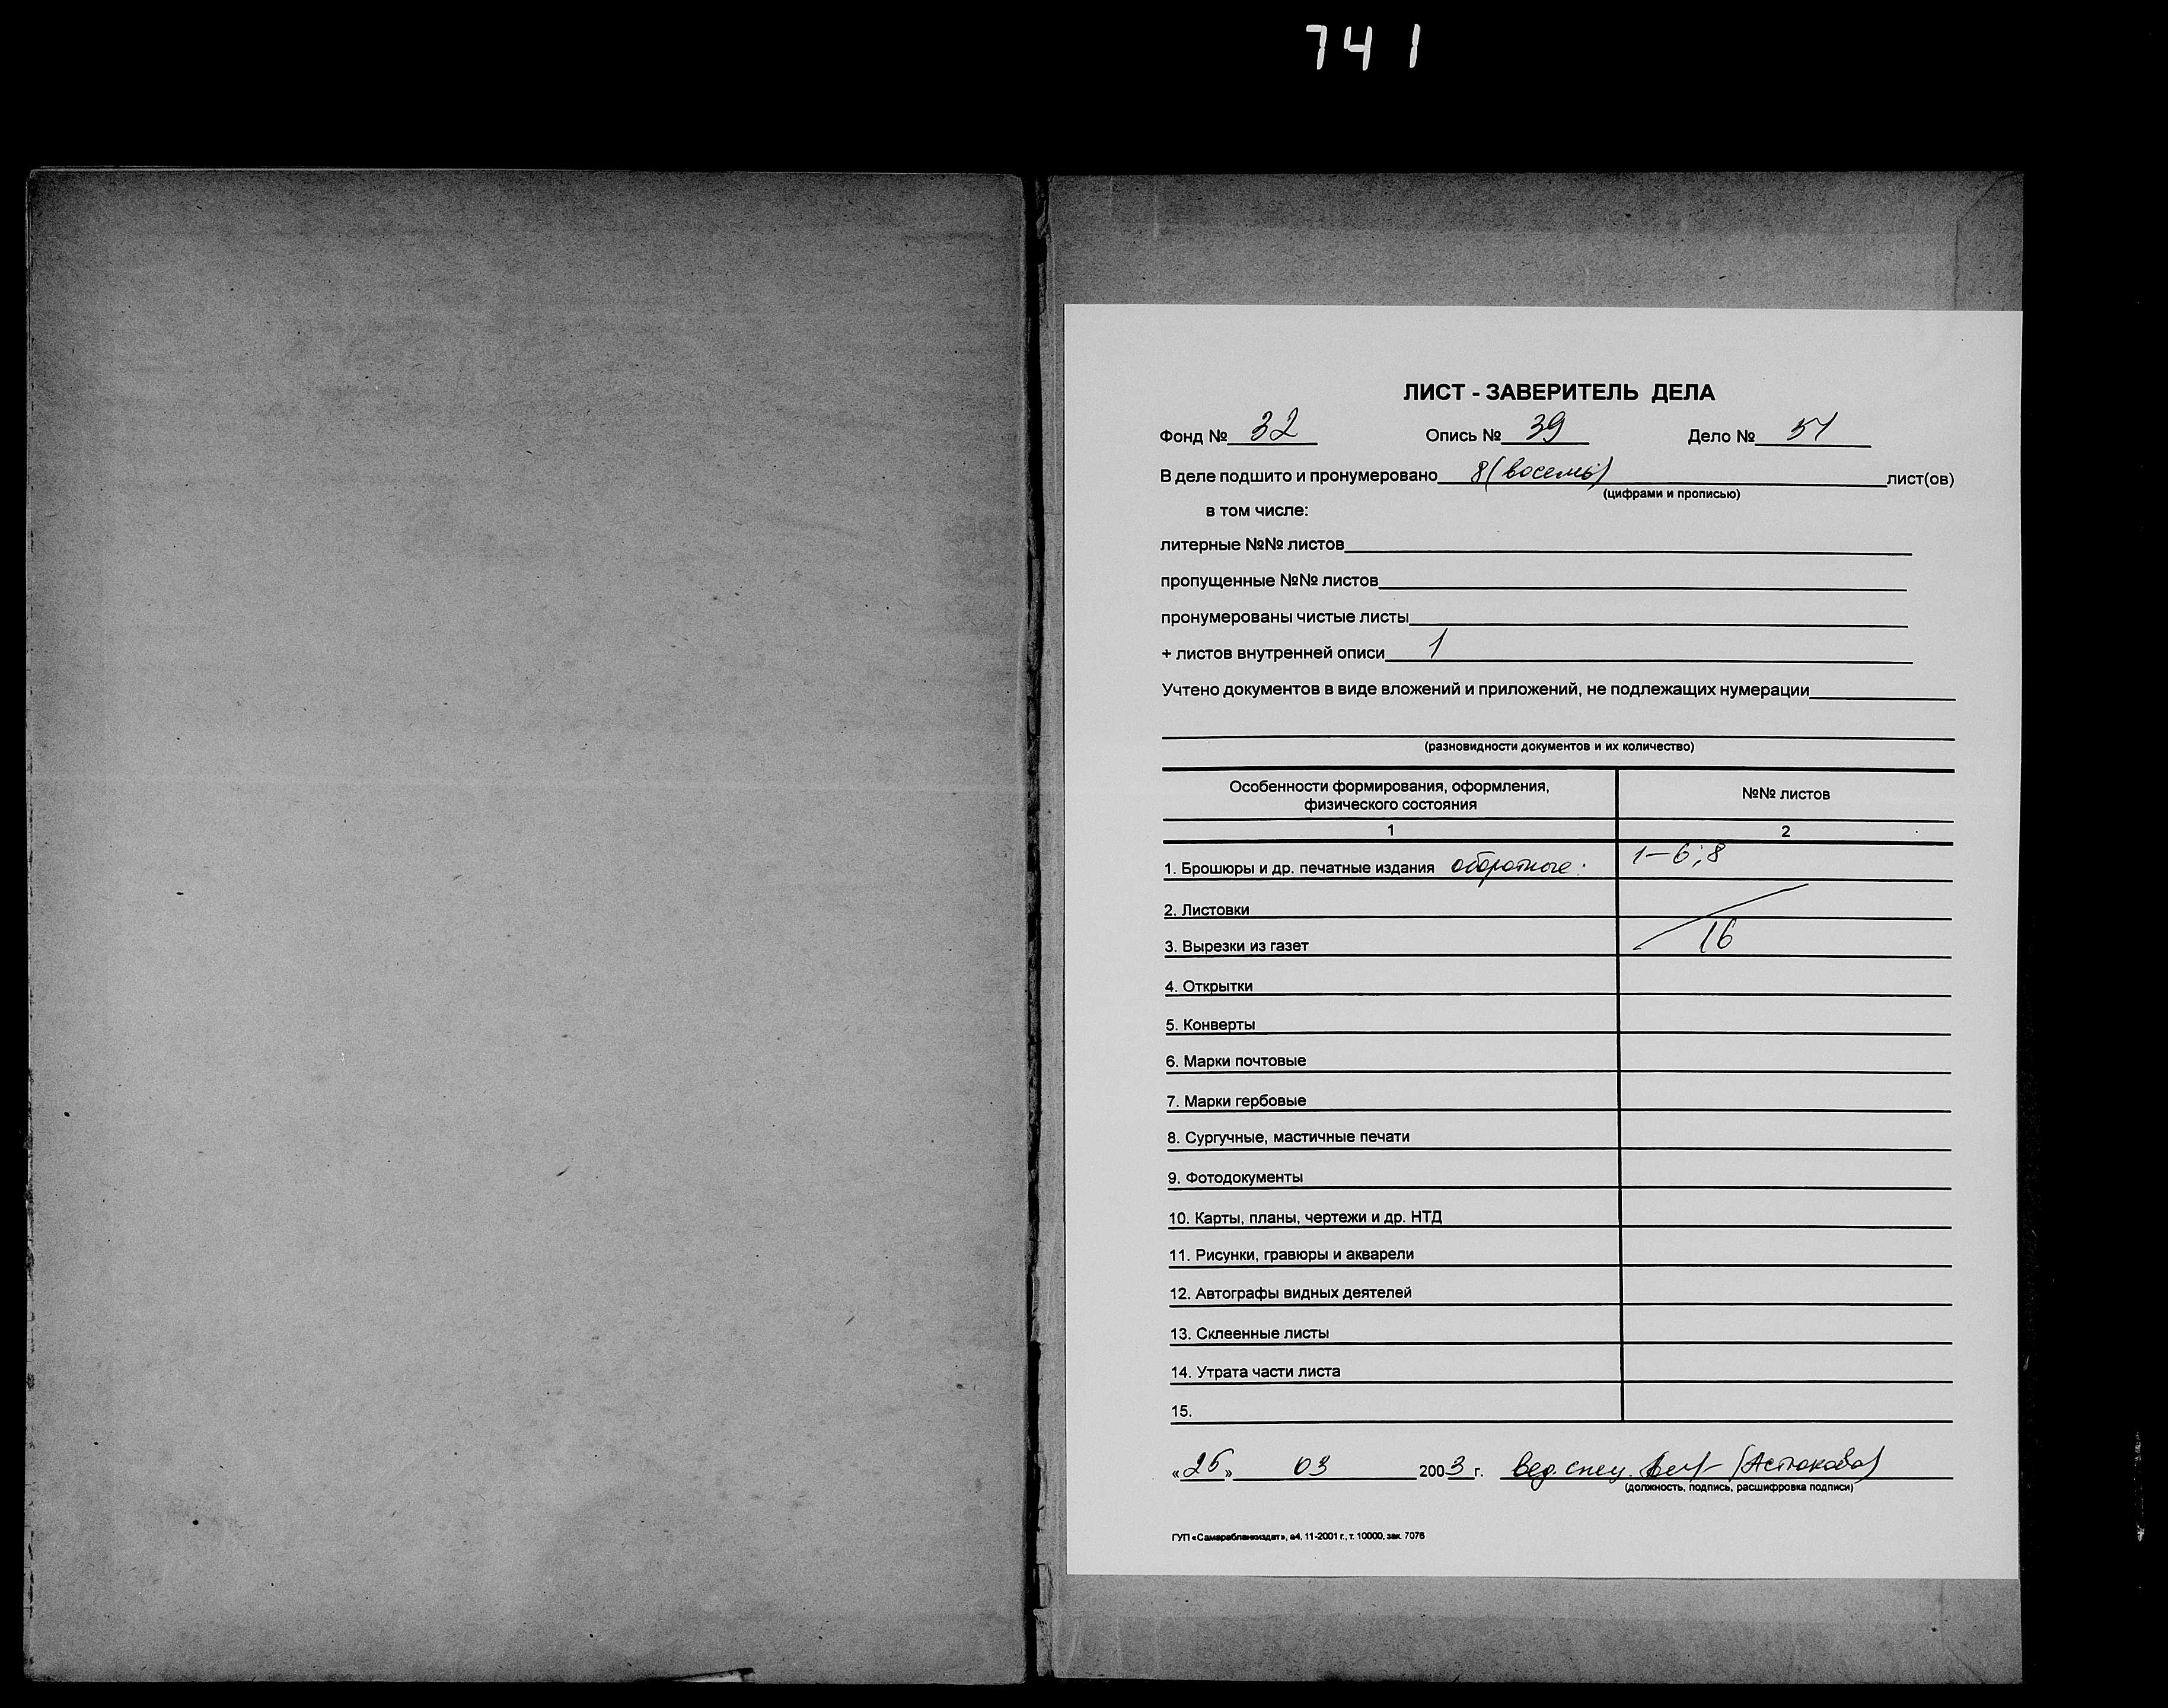 741
ЛИСТ - ЗАВЕРИТЕЛЬ ДЕЛА
Фонд № 32 Опись № 39 Дело № 51
В деле подшито и пронумеровано 8 (восемь) лист(ов)
(цифрами и прописью)
в том числе:
литерные №№ листов
пропущенные №№ листов
пронумерованы чистые листы
+ листов внутренней описи 1
Учтено документов в виде вложений и приложений, не подлежащих нумерации
(разновидности документов и их количество)
Особенности формирования, оформления, физического состояния №№ листов
1 2
1. Брошюры и др. печатные издания оборотные: 1-6; 8
2. Листовки
3. Вырезки из газет 16
4. Открытки
5. Конверты
6. Марки почтовые
7. Марки гербовые
8. Сургучные, мастичные печати
9. Фотодокументы
10. Карты, планы, чертежи и др. НТД
11. Рисунки, гравюры и акварели
12. Автографы видных деятелей
13. Склеенные листы
14. Утрата части листа
15.
«25» 03 2003 г. вед. спец. (Астокова)
(должность, подпись, расшифровка подписи)
ГУП «Самарабланкиздат», а4, 11-2001 г., т. 10000, зак. 7076